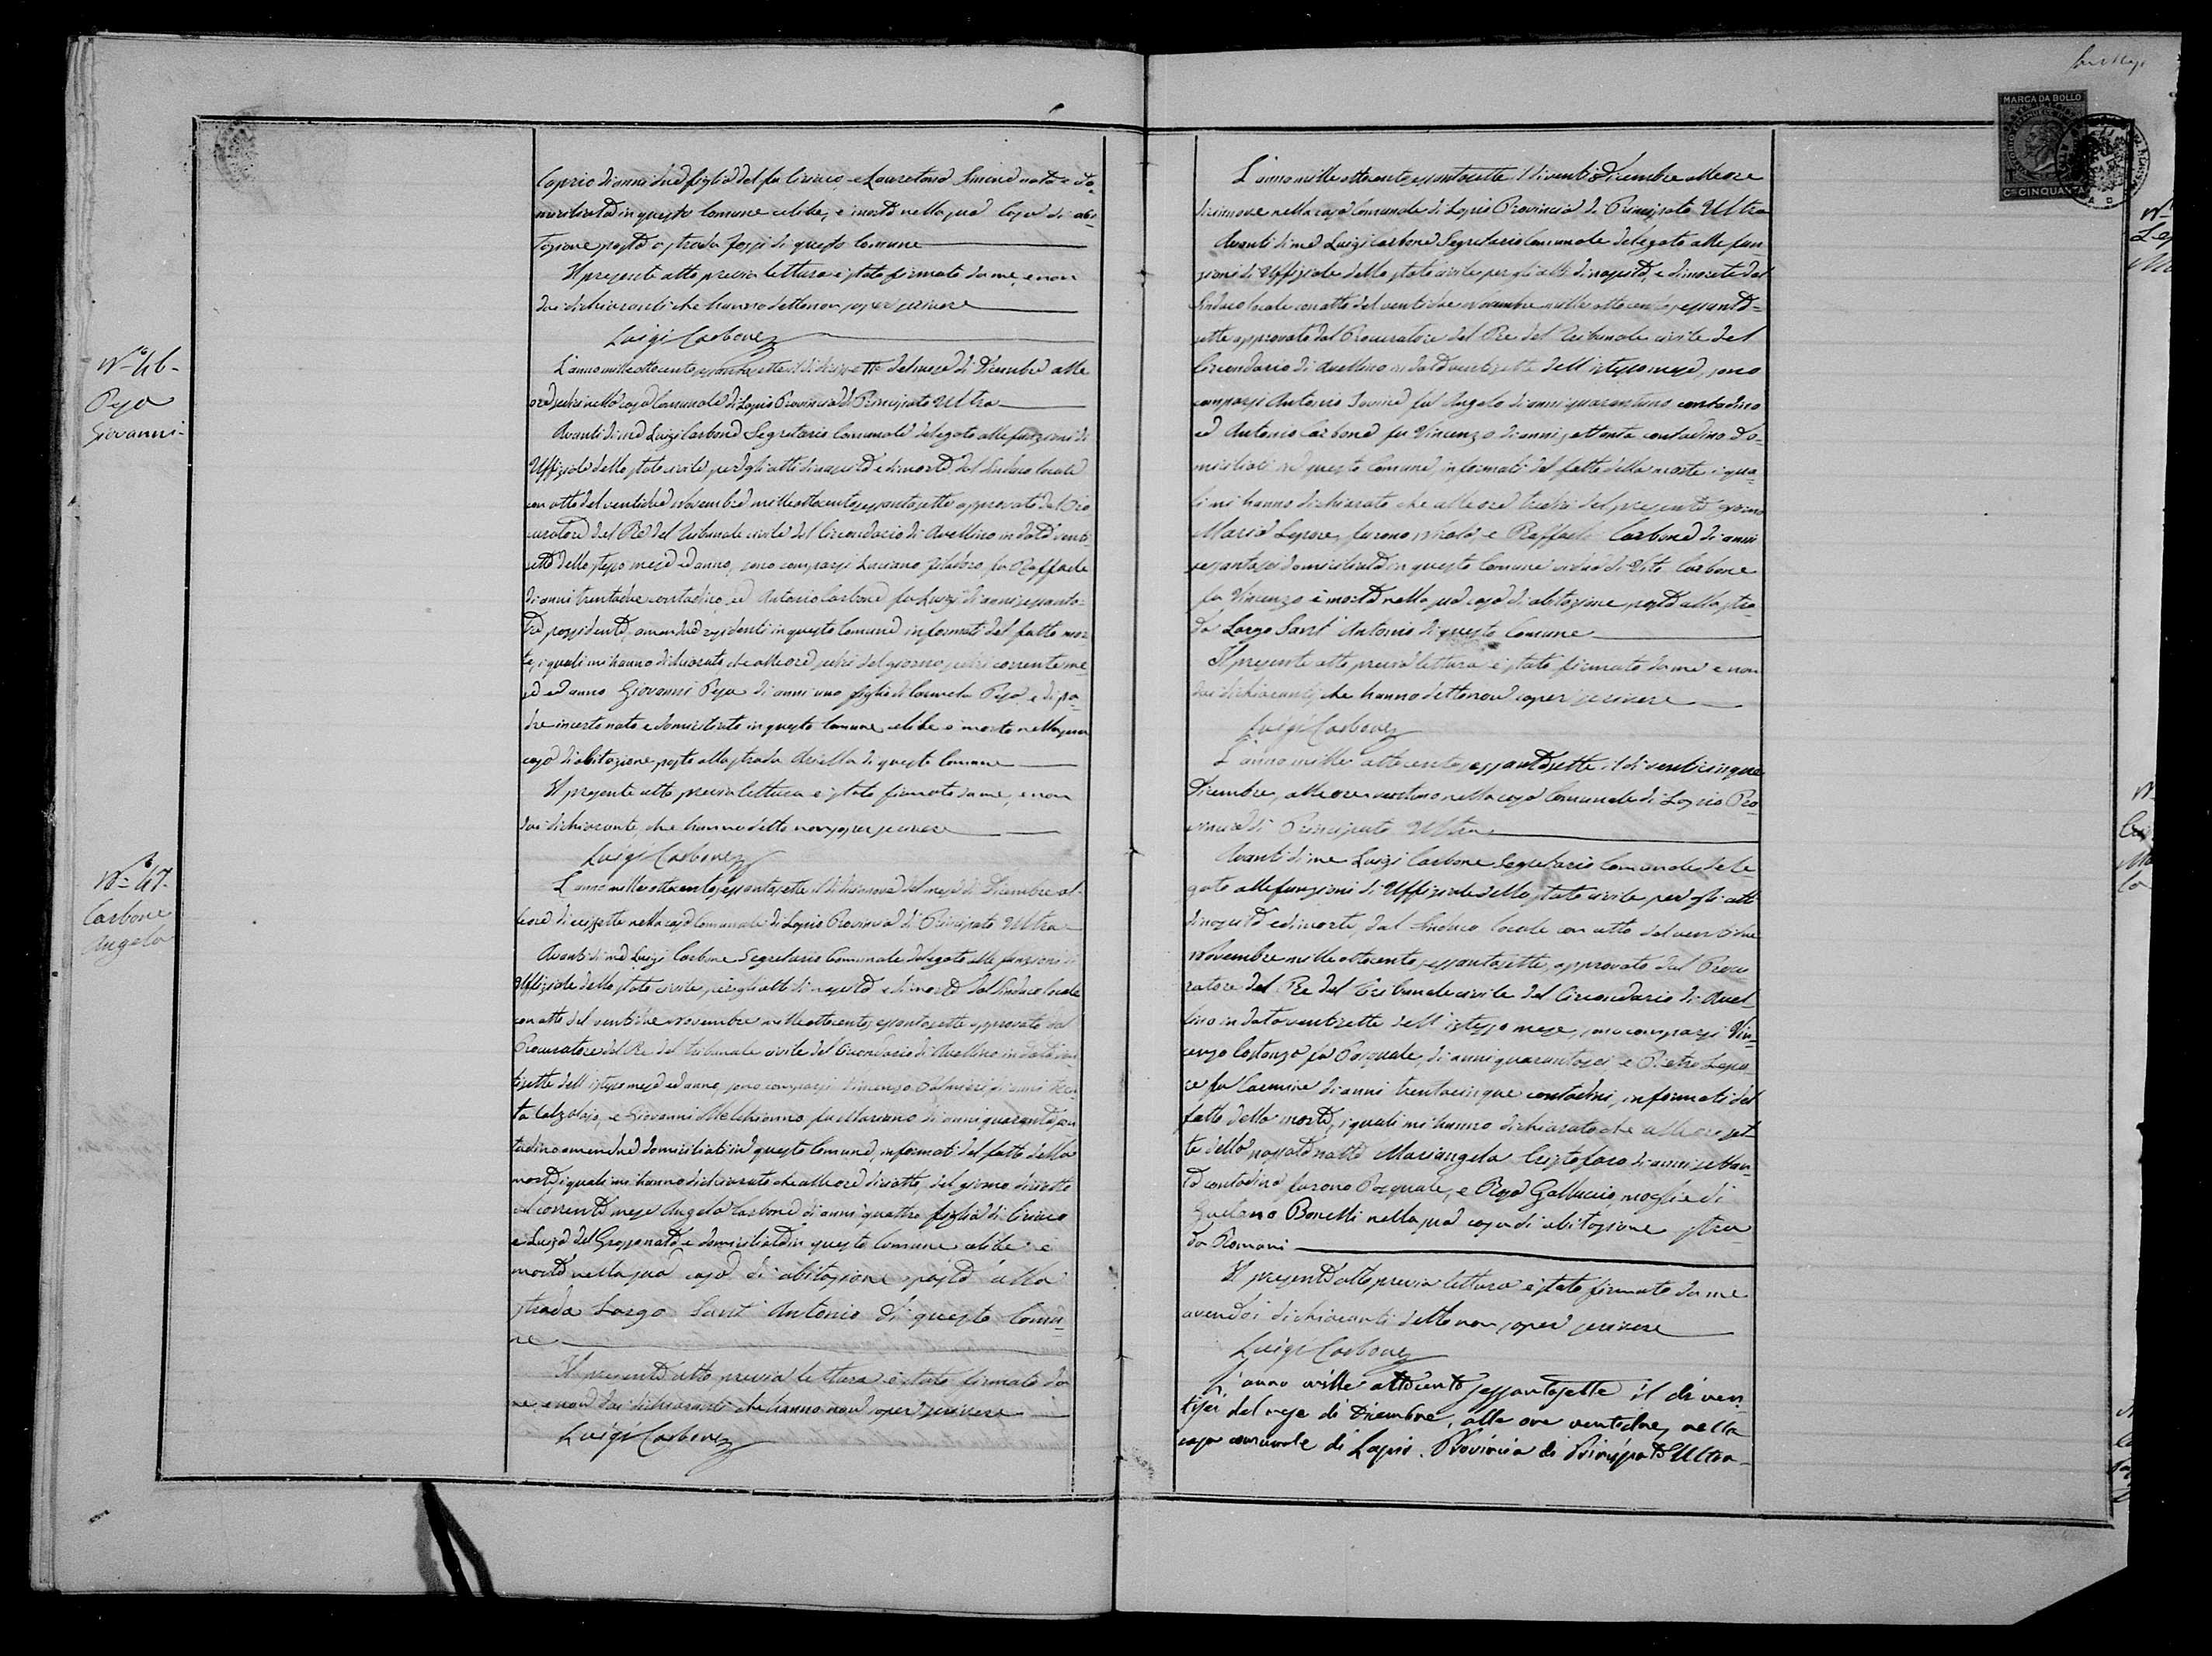 Caprio di anni due figlia del fu Ciriaco, e Lauretana Simone nata e do=
miciliata in questo Comune celibe, è morta nella sua casa di abi=
tazione posta a strada fossi di questo Comune
Il presente atto previa lettura è stato firmato da me, e non
dai dichiaranti che hanno detto non saper scrivere
Luigi Carbone
N° 46-
Pepa
Giovanni-
L'anno mille ottocento sessantasette il dì diciassette del mese di Dicembre alle
ore sedici nella casa Comunale di Lapio Provincia di Principato Ultra
Avanti di me Luigi Carbone Segretario Comunale delegato alle funzioni di
Uffiziale dello stato civile per gli atti di nascita e di morte dal Sindaco locale
con atto del ventidue Novembre mille ottocento sessantasette approvato dal Pro
curatore del Re del Tribunale civile del Circondario di Avellino in data venti
sette dello stesso mese ed anno, sono comparsi Luciano fu Raffaele
di anni trentadue contadino, ed Antonio Carbone fu Luigi di anni sessanta=
tre possidente, amendue residenti in questo Comune informati del fatto mor
te, i quali mi hanno dichiarato che alle ore sedici del giorno sedici corrente me
se ed anno Giovanni Pepa di anni uno figlio di Carmela Pepa, e di pa=
dre incerto nato e domiciliato in questo Comune, celibe è morto nella sua
casa di abitazione posta alla strada di questo Comune
Il presente atto previa lettura è stato firmato da me, e non
dai dichiaranti, che hanno detto non saper scrivere
Luigi Carbone
N° 47-
Carbone
Angela
L'anno mille ottocento sessantasette il dì diciannove del mese di Dicembre al=
le ore diciassette nella casa Comunale di Lapio Provincia di Principato Ultra
Avanti di me Luigi Carbone Segretario Comunale delegato alle funzioni di
Uffiziale dello stato civile, per gli atti di nascita e di morte dal Sindaco locale
con atto del ventidue Novembre mille ottocento sessantasette approvato dal
Procuratore del Re del tribunale civile del Circondario di Avellino in data ven
tisette dell'istesso mese ed anno, sono comparsi Vincenzo Palmieri di anni tren
ta Calzolajo, e Giovanni Melchionno fu Mariano di anni quaranta con
tadino amendue domiciliati in questo Comune, informati del fatto della
morte, i quali mi hanno dichiarato che alle ore diciotto, del giorno diciotto
del corrente mese Angela Carbone di anni quattro figlia di Ciriaco
e Luisa del Grosso nata e domiciliata in questo Comune celibe è
morta nella sua casa di abitazione posta alla
strada Largo Sant' Antonio di questo Comu=
ne
Il presente atto previa lettura è stato firmato da
me, e non dai dichiaranti che hanno non saper scrivere
Luigi Carbone
MARCA DA BOLLO
CINQUANTA
L'anno mille ottocento sessantasette il dì venti Dicembre alle ore
diciannove nella casa Comunale di Lapio Provincia di Principato Ultra
Avanti di me Luigi Carbone Segretario Comunale delegato alle fun
zioni di Uffiziale dello stato civile per gli atti di nascita, e di morte dal
Sindaco locale con atto del ventidue novembre mille ottocento sessanta=
sette approvato dal Procuratore del Re del Tribunale civile del
Circondario di Avellino in data ventisette dell'istesso mese, sono
comparsi Antonio Iovine fu Angelo di anni quarantuno contadino
ed Antonio Carbone fu Vincenzo di anni settanta contadino do=
miciliati in questo Comune, informati del fatto della morte i qua
li mi hanno dichiarato che alle ore tredici del presente giorno
Maria Lepore, furono Nicola e Raffaela Carbone di anni
sessantasei domiciliata in questo Comune vedova di Vito Carbone
fu Vincenzo è morta nella sua casa di abitazione posta alla stra
da Largo Sant' Antonio di questo Comune
Il presente atto previa lettura è stato firmato da me e non
dai dichiaranti, che hanno detto non saper scrivere
Luigi Carbone
L'anno mille ottocento sessantasette il dì venticinque
Dicembre, alle ore ventuno nella casa Comunale di Lapio Pro
vincia di Principato Ultra
Avanti di me Luigi Carbone Segretario Comunale dele
gato alle funzioni di Uffiziale dello stato civile, per gli atti
di nascita e di morte, dal Sindaco locale con atto del ventidue
Novembre mille ottocento sessantasette, approvato dal Procu
ratore del Re del Tribunale civile del Circondario di Avel=
lino in data ventisette dell'istesso mese, sono comparsi Vin=
cenzo Costanzo fu Pasquale, di anni quarantasei e Pietro Lepo=
re fu Carmine di anni trentacinque contadini, informati del
fatto della morte, i quali mi hanno dichiarato che alle ore set
te della passata notte Mariangela Cristofaro di anni settan
ta contadina furono Pasquale, e Rosa Galluccio, moglie di
Gaetano Bonelli nella sua casa di abitazione stra
da Romani
Il presente atto previa lettura è stato firmato da me
avendo i dichiaranti detto non saper scrivere
Luigi Carbone
L'anno mille ottocento sessantasette il dì ven=
tisei del mese di Dicembre, alle ore ventidue, nella
casa comunale di Lapio, Provincia di Principato Ultra-